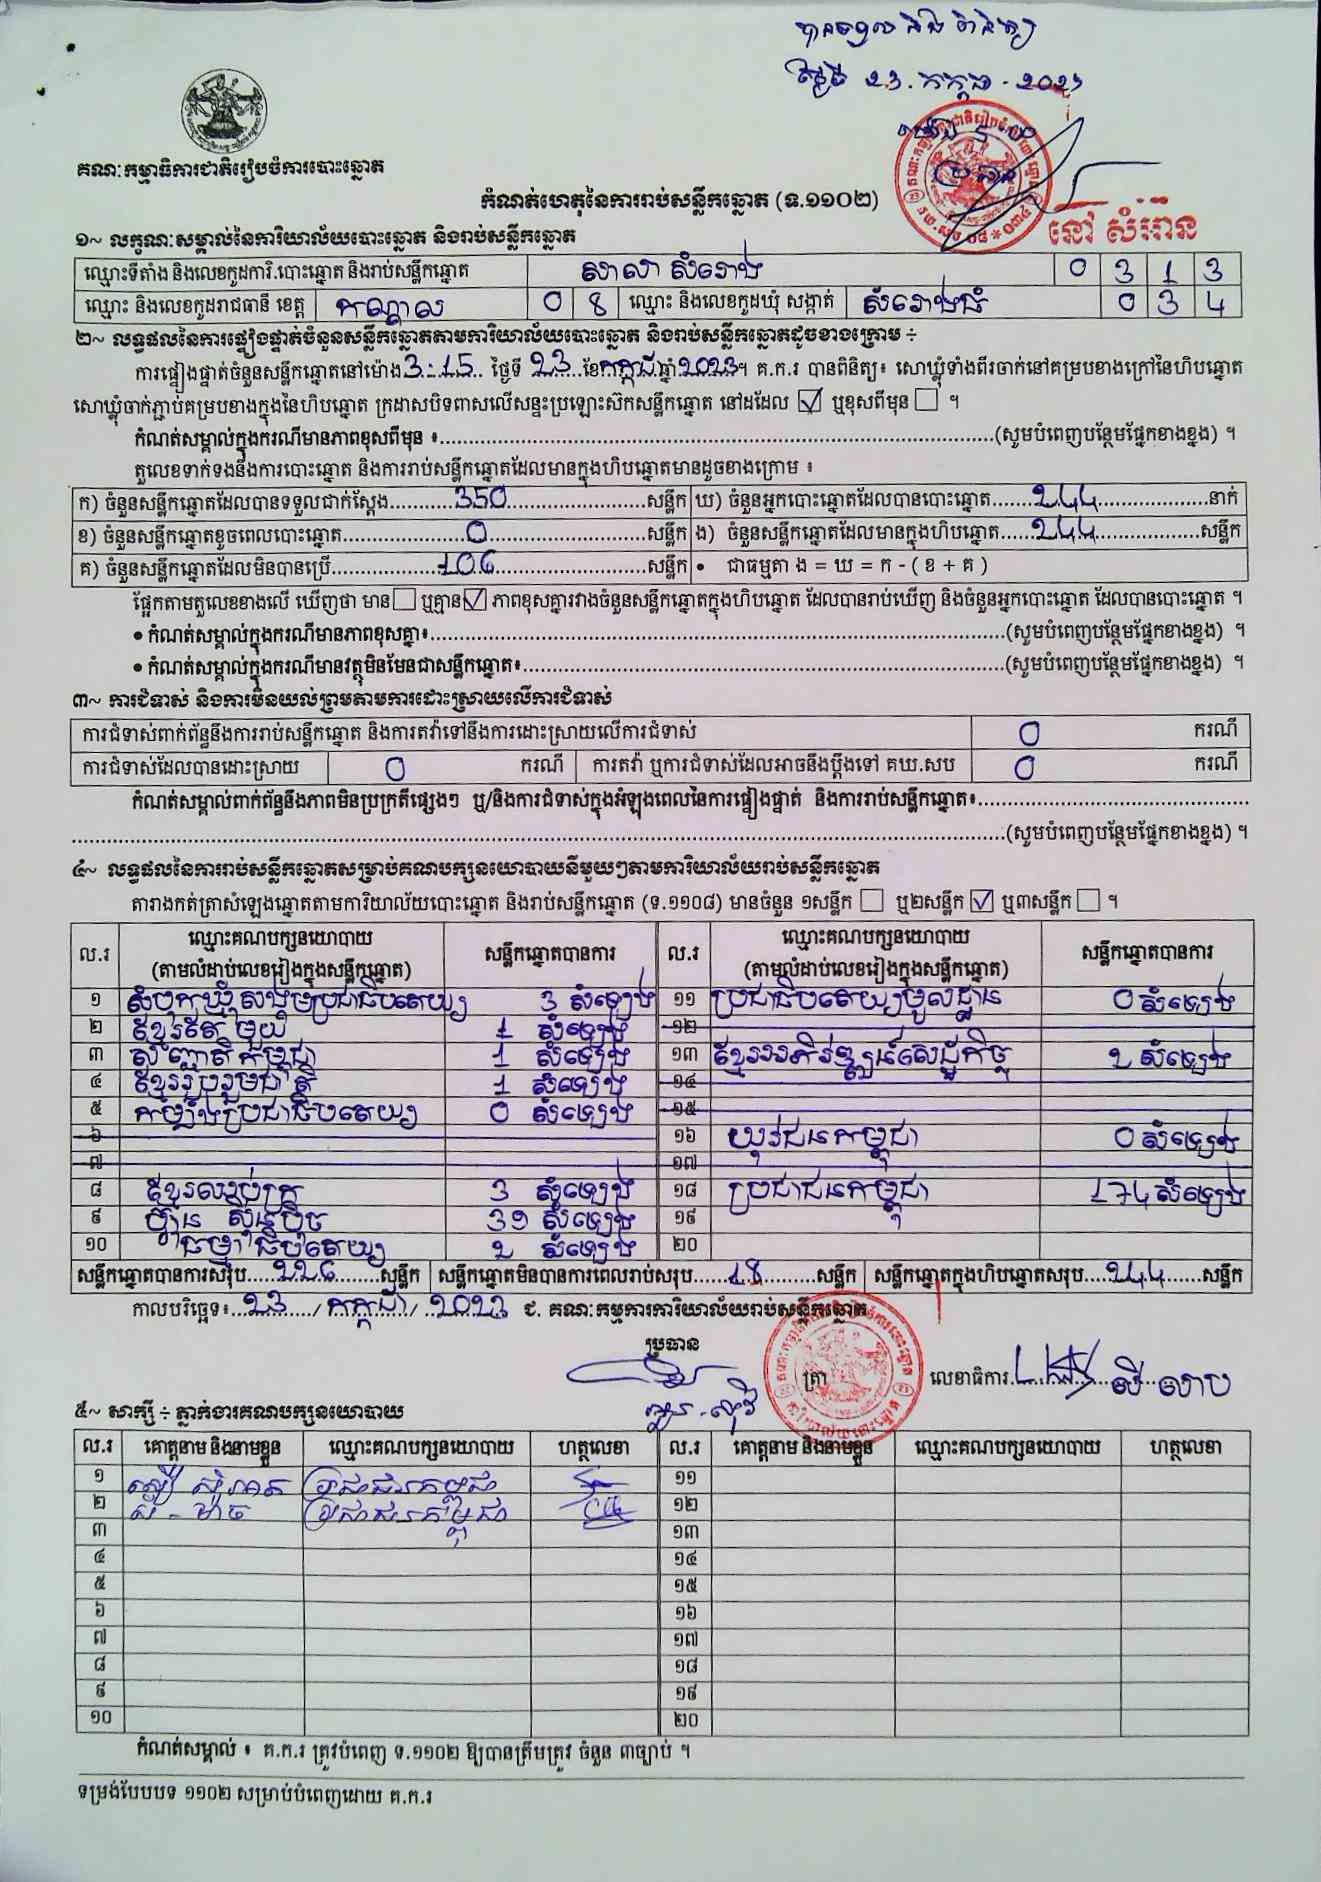 បានទទួល និង ពិនិត្យ
ថ្ងៃទី 23. កក្កដា - 2023
ប្រធាន
នៅ សំអឿន
គណៈកម្មាធិការជាតិរៀបចំការបោះឆ្នោត
កំណត់ហេតុនៃការរាប់សន្លឹកឆ្នោត (ទ.១១០២)
១~ លក្ខណៈសម្គាល់នៃការិយាល័យបោះឆ្នោត និងរាប់សន្លឹកឆ្នោត
ឈ្មោះទីតាំង និងលេខកូដការិ.បោះឆ្នោត និងរាប់សន្លឹកឆ្នោត សាលា សំរោង 0 3 1 3
ឈ្មោះ និងលេខកូដរាជធានី ខេត្ត កណ្តាល 0 8 ឈ្មោះ និងលេខកូដឃុំ សង្កាត់ សំរោងធំ 0 3 4
២~ លទ្ធផលនៃការផ្ទៀងផ្ទាត់ចំនួនសន្លឹកឆ្នោតតាមការិយាល័យបោះឆ្នោត និងរាប់សន្លឹកឆ្នោតដូចខាងក្រោម ÷
ការផ្ទៀងផ្ទាត់ចំនួនសន្លឹកឆ្នោតនៅម៉ោង 3:15 ថ្ងៃទី 23 ខែ កក្កដា ឆ្នាំ 2023 ។ គ.ក.រ បានពិនិត្យ៖ សោឃ្លុំទាំងពីរចាក់នៅគម្របខាងក្រៅនៃហិបឆ្នោត
សោឃ្លុំចាក់ភ្ជាប់គម្របខាងក្នុងនៃហិបឆ្នោត ក្រដាសបិទពាសលើសន្ទះប្រឡោះស៊កសន្លឹកឆ្នោត នៅដដែល ☑ ឬខុសពីមុន ☐ ។
កំណត់សម្គាល់ក្នុងករណីមានភាពខុសពីមុន ៖ (សូមបំពេញបន្ថែមផ្នែកខាងខ្នង) ។
តួលេខទាក់ទងនឹងការបោះឆ្នោត និងការរាប់សន្លឹកឆ្នោតដែលមានក្នុងហិបឆ្នោតមានដូចខាងក្រោម ៖
ក) ចំនួនសន្លឹកឆ្នោតដែលបានទទួលជាក់ស្តែង 350 សន្លឹក ឃ) ចំនួនអ្នកបោះឆ្នោតដែលបានបោះឆ្នោត 244 នាក់
ខ) ចំនួនសន្លឹកឆ្នោតខូចពេលបោះឆ្នោត 0 សន្លឹក ង) ចំនួនសន្លឹកឆ្នោតដែលមានក្នុងហិបឆ្នោត 244 សន្លឹក
គ) ចំនួនសន្លឹកឆ្នោតដែលមិនបានប្រើ 106 សន្លឹក • ជាធម្មតា ង = ឃ = ក - ( ខ + គ )
ផ្អែកតាមតួលេខខាងលើ ឃើញថា មាន ☐ ឬគ្មាន ☑ ភាពខុសគ្នារវាងចំនួនសន្លឹកឆ្នោតក្នុងហិបឆ្នោត ដែលបានរាប់ឃើញ និងចំនួនអ្នកបោះឆ្នោត ដែលបានបោះឆ្នោត ។
• កំណត់សម្គាល់ក្នុងករណីមានភាពខុសគ្នា៖ (សូមបំពេញបន្ថែមផ្នែកខាងខ្នង) ។
• កំណត់សម្គាល់ក្នុងករណីមានវត្ថុមិនមែនជាសន្លឹកឆ្នោត៖ (សូមបំពេញបន្ថែមផ្នែកខាងខ្នង) ។
៣~ ការជំទាស់ និងការមិនយល់ព្រមតាមការដោះស្រាយលើការជំទាស់
ការជំទាស់ពាក់ព័ន្ធនឹងការរាប់សន្លឹកឆ្នោត និងការតវ៉ាទៅនឹងការដោះស្រាយលើការជំទាស់ 0 ករណី
ការជំទាស់ដែលបានដោះស្រាយ 0 ករណី ការតវ៉ា ឬការជំទាស់ដែលអាចនឹងប្តឹងទៅ គឃ.សប 0 ករណី
កំណត់សម្គាល់ពាក់ព័ន្ធនឹងភាពមិនប្រក្រតីផ្សេងៗ ឬ/និងការជំទាស់ក្នុងអំឡុងពេលនៃការផ្ទៀងផ្ទាត់ និងការរាប់សន្លឹកឆ្នោត៖
(សូមបំពេញបន្ថែមផ្នែកខាងខ្នង) ។
៤~ លទ្ធផលនៃការរាប់សន្លឹកឆ្នោតសម្រាប់គណបក្សនយោបាយនីមួយៗតាមការិយាល័យរាប់សន្លឹកឆ្នោត
តារាងកត់ត្រាសំឡេងឆ្នោតតាមការិយាល័យបោះឆ្នោត និងរាប់សន្លឹកឆ្នោត (ទ.១១០៨) មានចំនួន ១សន្លឹក ☐ ឬ២សន្លឹក ☑ ឬ៣សន្លឹក ☐ ។
ល.រ ឈ្មោះគណបក្សនយោបាយ (តាមលំដាប់លេខរៀងក្នុងសន្លឹកឆ្នោត) សន្លឹកឆ្នោតបានការ ល.រ ឈ្មោះគណបក្សនយោបាយ (តាមលំដាប់លេខរៀងក្នុងសន្លឹកឆ្នោត) សន្លឹកឆ្នោតបានការ
១ សំបុកឃ្មុំសង្គមប្រជាធិបតេយ្យ 3 សំឡេង ១១ ប្រជាធិបតេយ្យមូលដ្ឋាន 0 សំឡេង
២ ខ្មែរតែមួយ 1 សំឡេង ១២
៣ សញ្ជាតិកម្ពុជា 1 សំឡេង ១៣ ខ្មែរអភិវឌ្ឍន៍សេដ្ឋកិច្ច 2 សំឡេង
៤ ខ្មែររួបរួមជាតិ 1 សំឡេង ១៤
៥ កម្លាំងប្រជាធិបតេយ្យ 0 សំឡេង ១៥
៦ ១៦ យុវជនកម្ពុជា 0 សំឡេង
៧ ១៧
៨ ខ្មែរឈប់ក្រ 3 សំឡេង ១៨ ប្រជាជនកម្ពុជា 174 សំឡេង
៩ ហ៊្វុនស៊ិនប៉ិច 39 សំឡេង ១៩
១០ ធម្មាធិបតេយ្យ 2 សំឡេង ២០
សន្លឹកឆ្នោតបានការសរុប 226 សន្លឹក សន្លឹកឆ្នោតមិនបានការពេលរាប់សរុប 18 សន្លឹក សន្លឹកឆ្នោតក្នុងហិបឆ្នោតសរុប 244 សន្លឹក
កាលបរិច្ឆេទ៖ 23 / កក្កដា / 2023 ជ. គណៈកម្មការការិយាល័យរាប់សន្លឹកឆ្នោត
ប្រធាន ត្រា លេខាធិការ ស៊ី លាប
៥~ សាក្សី ÷ ភ្នាក់ងារគណបក្សនយោបាយ
ល.រ គោត្តនាម និងនាមខ្លួន ឈ្មោះគណបក្សនយោបាយ ហត្ថលេខា ល.រ គោត្តនាម និងនាមខ្លួន ឈ្មោះគណបក្សនយោបាយ ហត្ថលេខា
១ ប្រជាជនកម្ពុជា ១១
២ ប្រជាជនកម្ពុជា ១២
៣ ១៣
៤ ១៤
៥ ១៥
៦ ១៦
៧ ១៧
៨ ១៨
៩ ១៩
១០ ២០
កំណត់សម្គាល់ ៖ គ.ក.រ ត្រូវបំពេញ ទ.១១០២ ឱ្យបានត្រឹមត្រូវ ចំនួន ៣ច្បាប់ ។
ទម្រង់បែបបទ ១១០២ សម្រាប់បំពេញដោយ គ.ក.រ